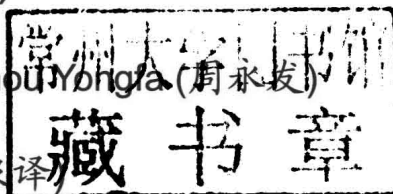 常州大学图书馆
ou Yongfa (周永发)
藏书章
译)